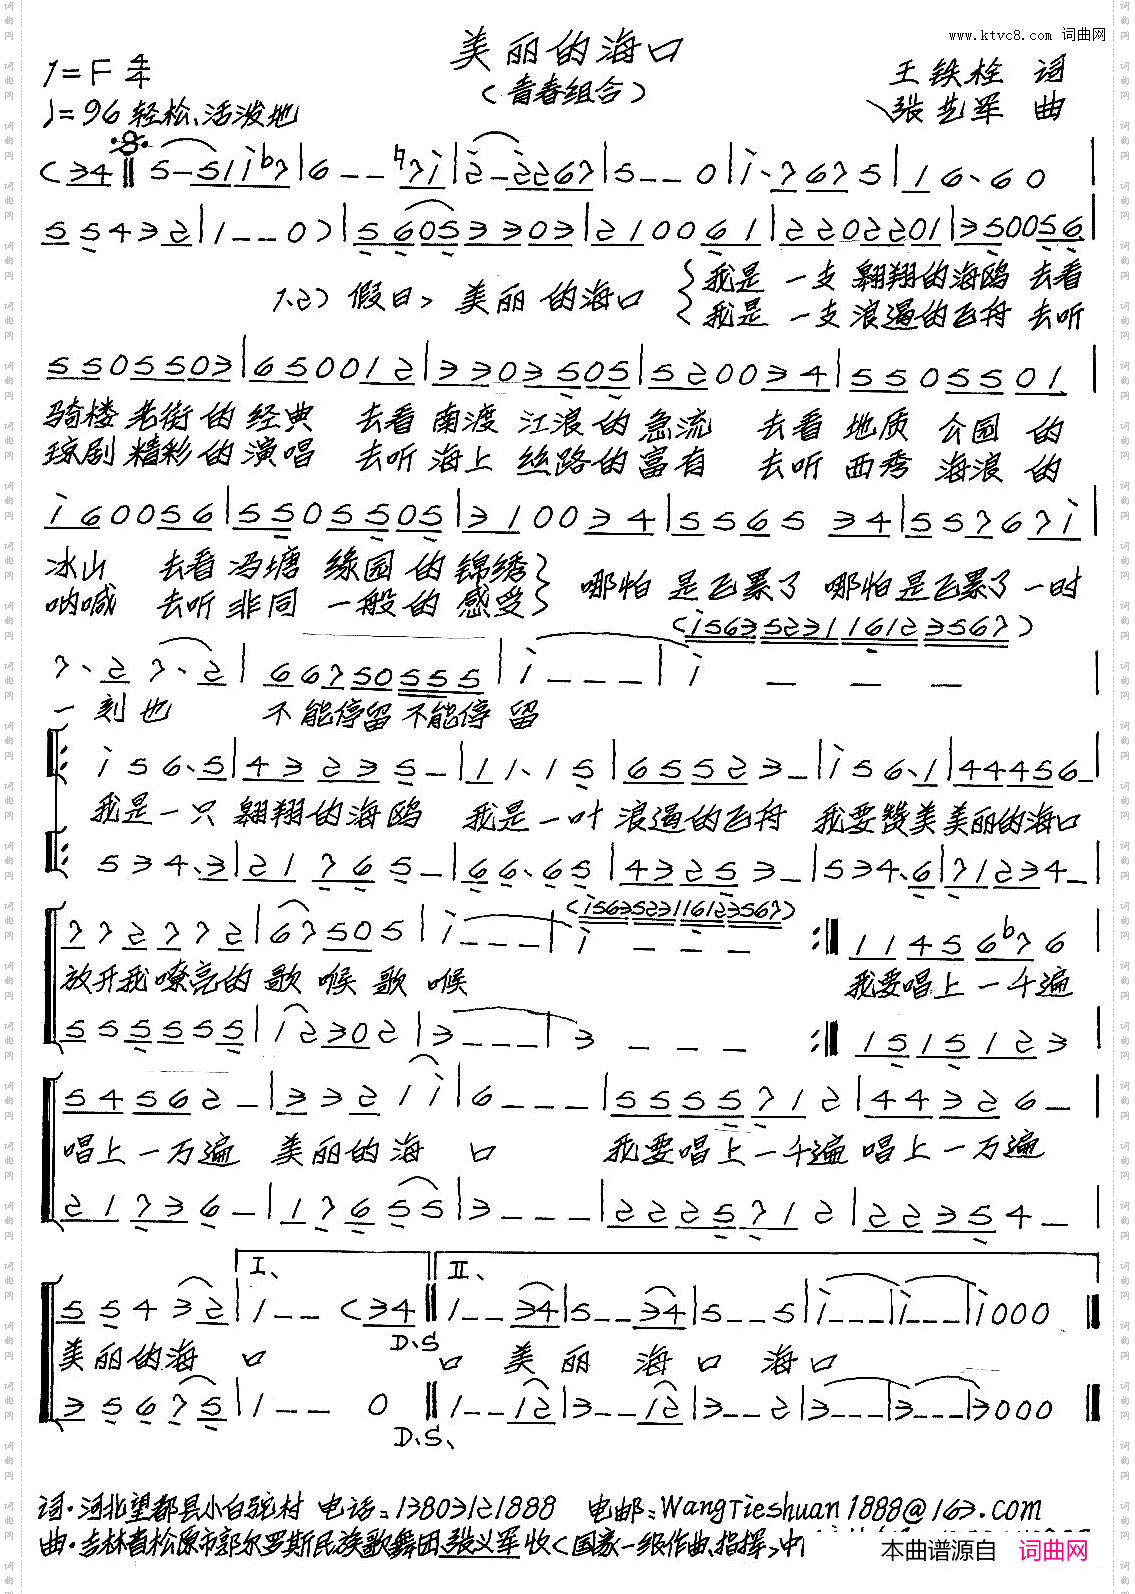 www.ktvc8.com 词曲网
美丽的海口
(青春组合)
1=F 4/4
♩=96 轻松、活泼地
王铁栓 词
张艺军 曲
(34 5-51 i b7 6-- 7i 2-2267 5--0 i·7675 16·60
55432 1--0) 56053303 210061 2202201 350056
1.2) 假日, 美丽的海口
我是 一支 翱翔的海鸥 去看
我是 一支 浪遏的飞舟 去听
5505503 650012 3303505 520034 5505501
骑楼 老街的经典 去看 南渡 江浪的急流 去看 地质 公园 的
琼剧 精彩的演唱 去听 海上 丝路的富有 去听 西秀 海浪 的
i60056 5505505 310034 5565 34 55767i
冰山 去看 冯塘 缘园 的 锦绣
呐喊 去听 非同 一般 的 感受
哪怕 是飞累了 哪怕是飞累了一时
(i563523116123567)
7·27·2 66750555 i--- i---
一刻也 不能停留不能停 留
i56·5 43235- 11·15 65523- i56·1 44456-
我是一只 翱翔的海鸥 我是一叶 浪遏的飞舟 我要赞美美丽的海口
534·3 21765- 66·65 43253- 534·6 71234-
(i563523116123567)
772772 67505 i--- i--- 11456b76
放开我嘹亮的歌 喉 歌 喉
我要唱上一千遍
555555 i2302 3--- 3--- 1515123
54562- 3321i 6--- 5555712 44326-
唱上一万遍 美丽的海 口 我要唱上一千遍 唱上一万遍
21736- 17655 3--- 2225712 22354-
I、 II、
55432 1-- (34 1--34 5--34 5--5 i--- i--- i000
D.S
美丽的海 口 口 美 丽 海 口 海 口
35675 1--0 1--12 3--12 3--2 3--- 3--- 3000
D.S、
词·河北望都县小白驼村 电话:13803121888 电邮:WangTieshuan1888@163.com
曲·吉林省松原市郭尔罗斯民族歌舞团 张义军收(国家一级作曲、指挥)中
本曲谱源自 词曲网